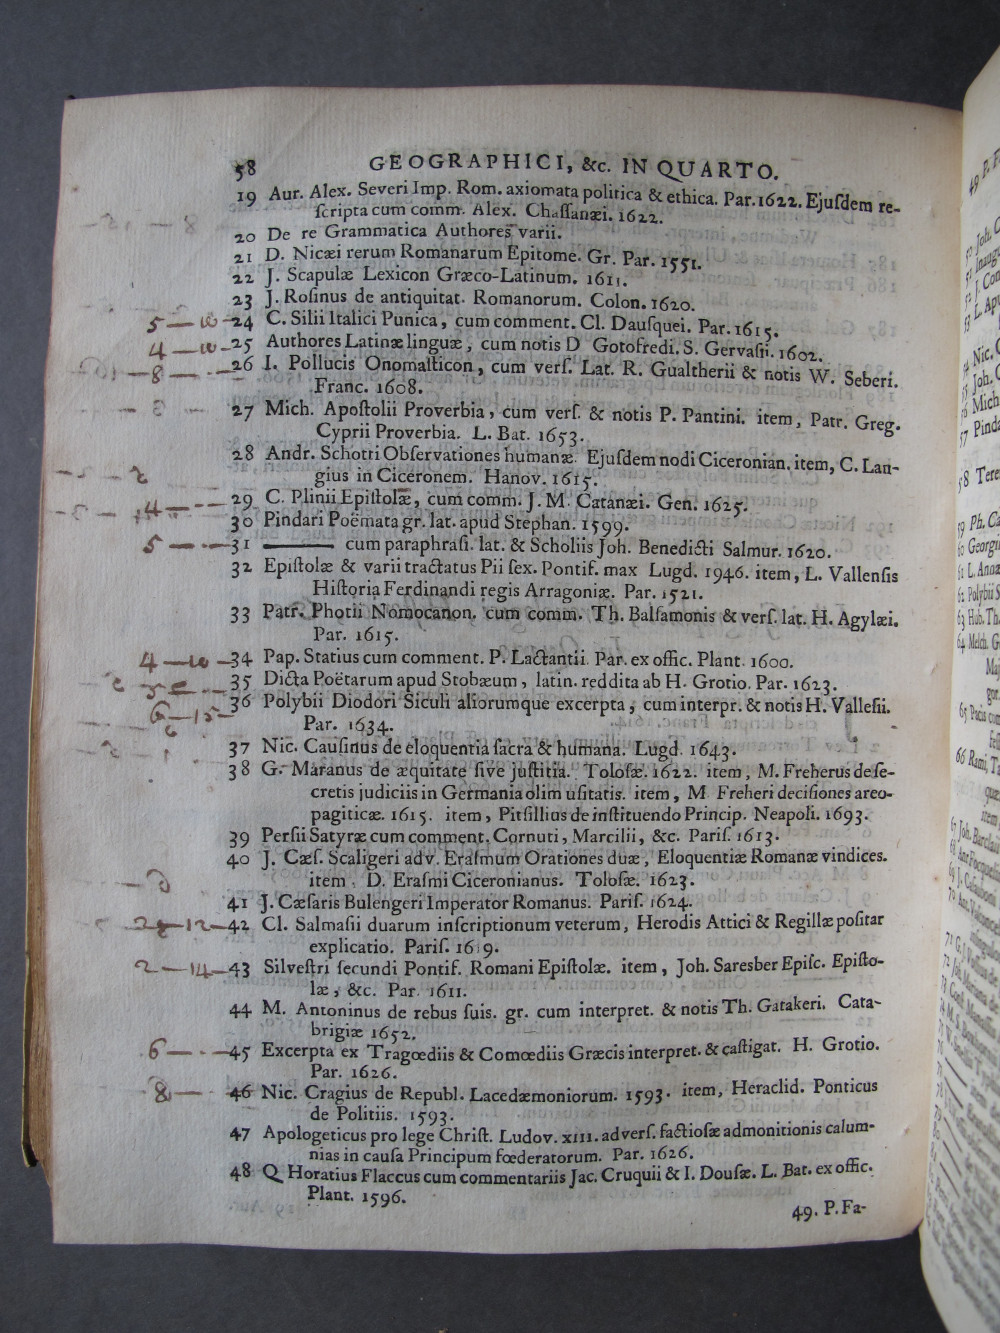 58 GEOGRAPHICI, &c. IN QUARTO.
19 Aur. Alex. Severi Imp. Rom. axiomata politica & ethica. Par. 1622. Ejuſdem re-
ſcripta cum comm. Alex. Chaſſanæi. 1622.
20 De re Grammatica Authores varii.
21 D. Nicæi rerum Romanarum Epitome. Gr. Par. 1551.
22 J. Scapulæ Lexicon Græco-Latinum. 1611.
23 J. Roſinus de antiquitat. Romanorum. Colon. 1620.
5 — 10 — 24 C. Silii Italici Punica, cum comment. Cl. Dauſquei. Par. 1615.
4 — 10 — 25 Authores Latinæ linguæ, cum notis D Gotofredi. S. Gervaſii. 1602.
8 — 26 I. Pollucis Onomaſticon, cum verſ. Lat. R. Gualtherii & notis W. Seberi.
Franc. 1608.
27 Mich. Apoſtolii Proverbia, cum verſ. & notis P. Pantini. item, Patr. Greg.
Cyprii Proverbia. L. Bat. 1653.
28 Andr. Schotti Obſervationes humanæ. Ejuſdem nodi Ciceronian. item, C. Lan-
gius in Ciceronem. Hanov. 1615.
4 — 29 C. Plinii Epiſtolæ, cum comm. J. M. Catanæi. Gen. 1625.
30 Pindari Poëmata gr. lat. apud Stephan. 1599.
5 — 31 —— cum paraphraſi. lat. & Scholiis Joh. Benedicti Salmur. 1620.
32 Epiſtolæ & varii tractatus Pii ſex. Pontif. max Lugd. 1946. item, L. Vallenſis
Hiſtoria Ferdinandi regis Arragoniæ. Par. 1521.
33 Patr. Photii Nomocanon. cum comm. Th. Balſamonis & verſ. lat. H. Agylæi.
Par. 1615.
4 — 10 — 34 Pap. Statius cum comment. P. Lactantii. Par. ex offic. Plant. 1600.
35 Dicta Poëtarum apud Stobæum, latin. reddita ab H. Grotio. Par. 1623.
6 — 15 — 36 Polybii Diodori Siculi aliorumque excerpta, cum interpr. & notis H. Valleſii.
Par. 1634.
37 Nic. Cauſinus de eloquentia ſacra & humana. Lugd. 1643.
38 G. Maranus de æquitate ſive juſtitia. Toloſæ. 1622. item, M. Freherus de ſe-
cretis judiciis in Germania olim uſitatis. item, M Freheri deciſiones areo-
pagiticæ. 1615. item, Pitſillius de inſtituendo Princip. Neapoli. 1693.
39 Perſii Satyræ cum comment. Cornuti, Marcilii, &c. Pariſ. 1613.
40 J. Cæſ. Scaligeri adv. Eraſmum Orationes duæ, Eloquentiæ Romanæ vindices.
item, D. Eraſmi Ciceronianus. Toloſæ. 1623.
41 J. Cæſaris Bulengeri Imperator Romanus. Pariſ. 1624.
12 — 42 Cl. Salmaſii duarum inſcriptionum veterum, Herodis Attici & Regillæ poſitar
explicatio. Pariſ. 1619.
2 — 14 — 43 Silveſtri ſecundi Pontif. Romani Epiſtolæ. item, Joh. Saresber Epiſc. Epiſto-
læ, &c. Par. 1611.
44 M. Antoninus de rebus ſuis. gr. cum interpret. & notis Th. Gatakeri. Cata-
brigiæ 1652.
6 — 45 Excerpta ex Tragœdiis & Comœdiis Græcis interpret. & caſtigat. H. Grotio.
Par. 1626.
8 — 46 Nic. Cragius de Republ. Lacedæmoniorum. 1593. item, Heraclid. Ponticus
de Politiis. 1593.
47 Apologeticus pro lege Chriſt. Ludov. XIII. adverſ. factioſæ admonitionis calum-
nias in cauſa Principum fœderatorum. Par. 1626.
48 Q Horatius Flaccus cum commentariis Jac. Cruquii & I. Douſæ. L. Bat. ex offic.
Plant. 1596.
49. P. Fa-